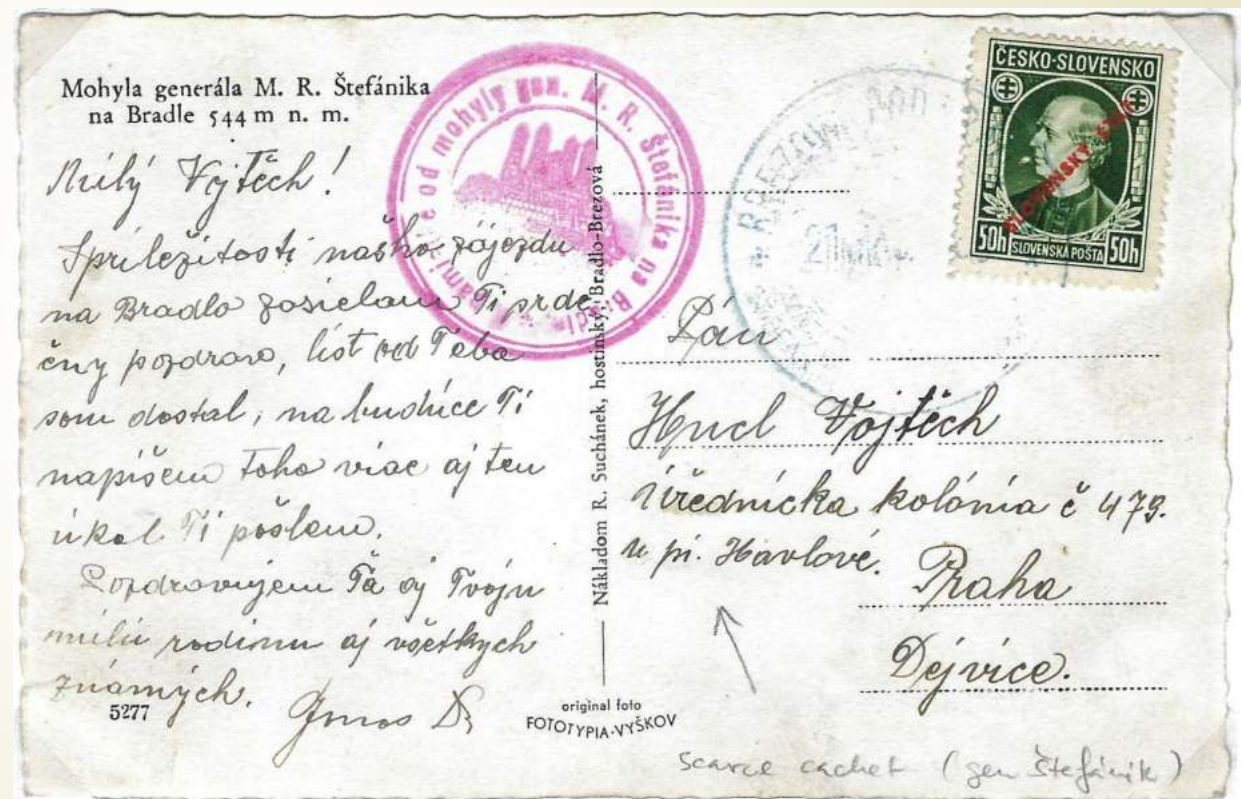 Mohyla generála M. R. Štefánika
na Bradle 544 m n. m.
Milý Vojtěch!
Spríležitosti našho zájezdu
na Bradlo zasielam Ti srde
čny pozdrav, list od Teba
som dostal, na budúce Ti
napíšem toho viac aj ten
úkol Ti pošlem.
Pozdravujem Ťa aj Tvoju
milú rodinu aj všetkych
známých.
5277
od mohyly gen. M. R. Štefánika na Bradle
Nákladom R. Suchánek, hostinský, Bradlo-Brezová
original foto
FOTOTYPIA-VYŠKOV
ČESKO-SLOVENSKO
SLOVENSKÝ ŠTÁT
50h SLOVENSKÁ POŠTA 50h
Pán
Hucl Vojtěch
Úřednícka kolónia č 479.
u pí. Havlové.
Praha
Dejvice.
scarce cachet (gen Štefánik)